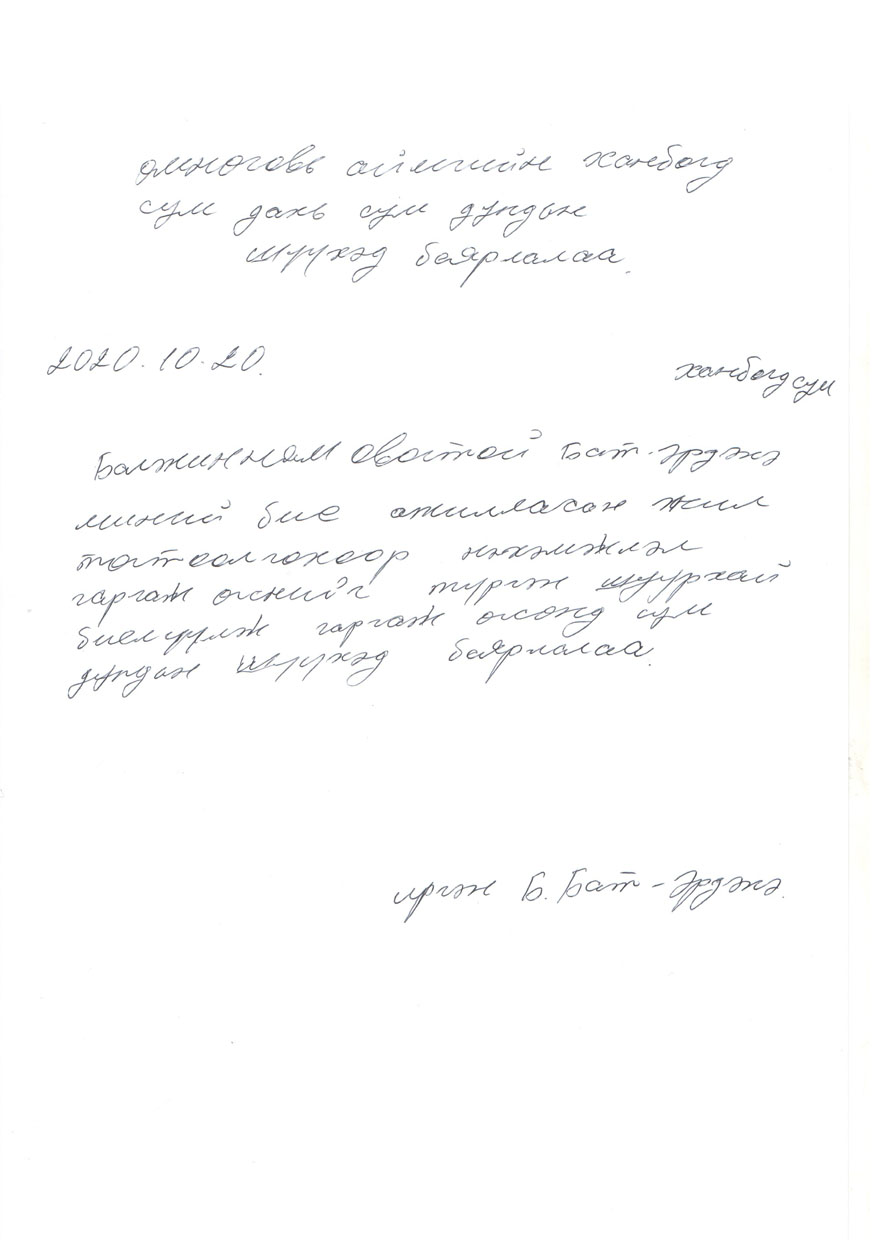 Өмноговь аймгийн Ханбогд
сум дахь сум дундын
шүүхэд баярлалаа.
2020.10.20.
Ханбогд сум
Балжинням овогтой Бат-Эрдэнэ
миний бие ажилласан жил
тогтоолгохоор нэхэмжлэл
гаргаж өгснийг түргэн шуурхай
биелүүлж гаргаж өгсөнд сум
дундын шүүхэд баярлалаа.
иргэн Б. Бат-Эрдэнэ.